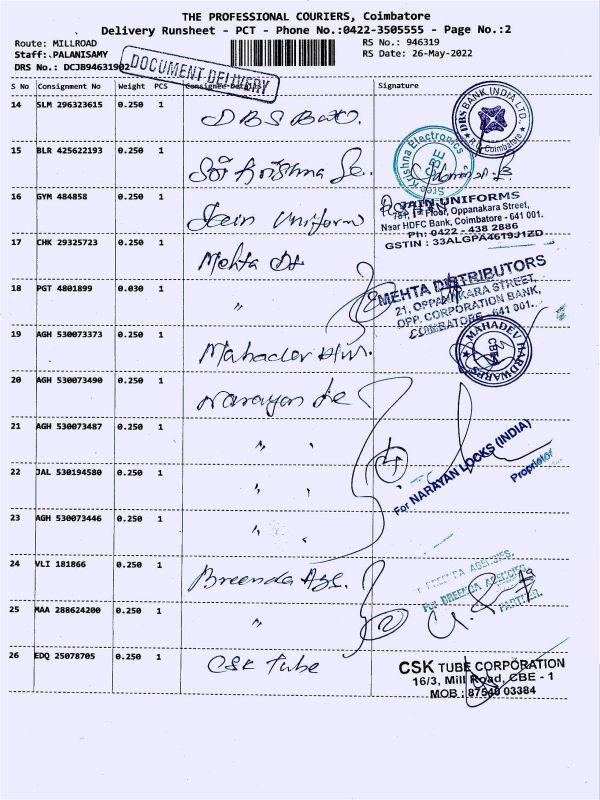 THE PROFESSIONAL COURIERS, Coimbatore
Delivery Runsheet - PCT - Phone No.:0422-3505555 - Page No.:2
Route: MILLROAD
RS No.: 946319
Staff: PALANISAMY
RS Date: 26-May-2022
DRS No.: DCJB94631902
DOCUMENT DELIVERY
S No Consignment No Weight PCS Consignee Details Signature
14 SLM 296323615 0.250 1 DBS
DBS BANK INDIA LTD., Coimbatore
15 BLR 425622193 0.250 1 Sri Krishna Le.
Sree Krishna Electronics CBE
16 GYM 484858 0.250 1 Jain Uniform
JAIN UNIFORMS
1st Floor, Oppanakara Street,
Near HDFC Bank, Coimbatore - 641 001.
Ph: 0422 - 438 2886
GSTIN : 33ALGPA4619J1ZD
17 CHK 29325723 0.250 1 Mehta Ds
18 PGT 4801899 0.030 1 "
MEHTA DISTRIBUTORS
21, OPPANAKARA STREET,
OPP. CORPORATION BANK,
COIMBATORE - 641 001.
19 AGH 530073373 0.250 1 Mahadev
MAHADEV HARDWARES CBE-1
20 AGH 530073490 0.250 1 Narayan Le
21 AGH 530073487 0.250 1 " "
4
For NARAYAN LOCKS (INDIA)
Proprietor
22 JAL 530194580 0.250 1 " "
23 AGH 530073446 0.250 1 " "
24 VLI 181866 0.250 1 Breenda Age.
For BREENDA AGENCIES
PARTNER.
25 MAA 288624200 0.250 1 "
2
26 EDQ 25078705 0.250 1 CSK Tube
CSK TUBE CORPORATION
16/3, Mill Road, CBE - 1
MOB : 87540 03384